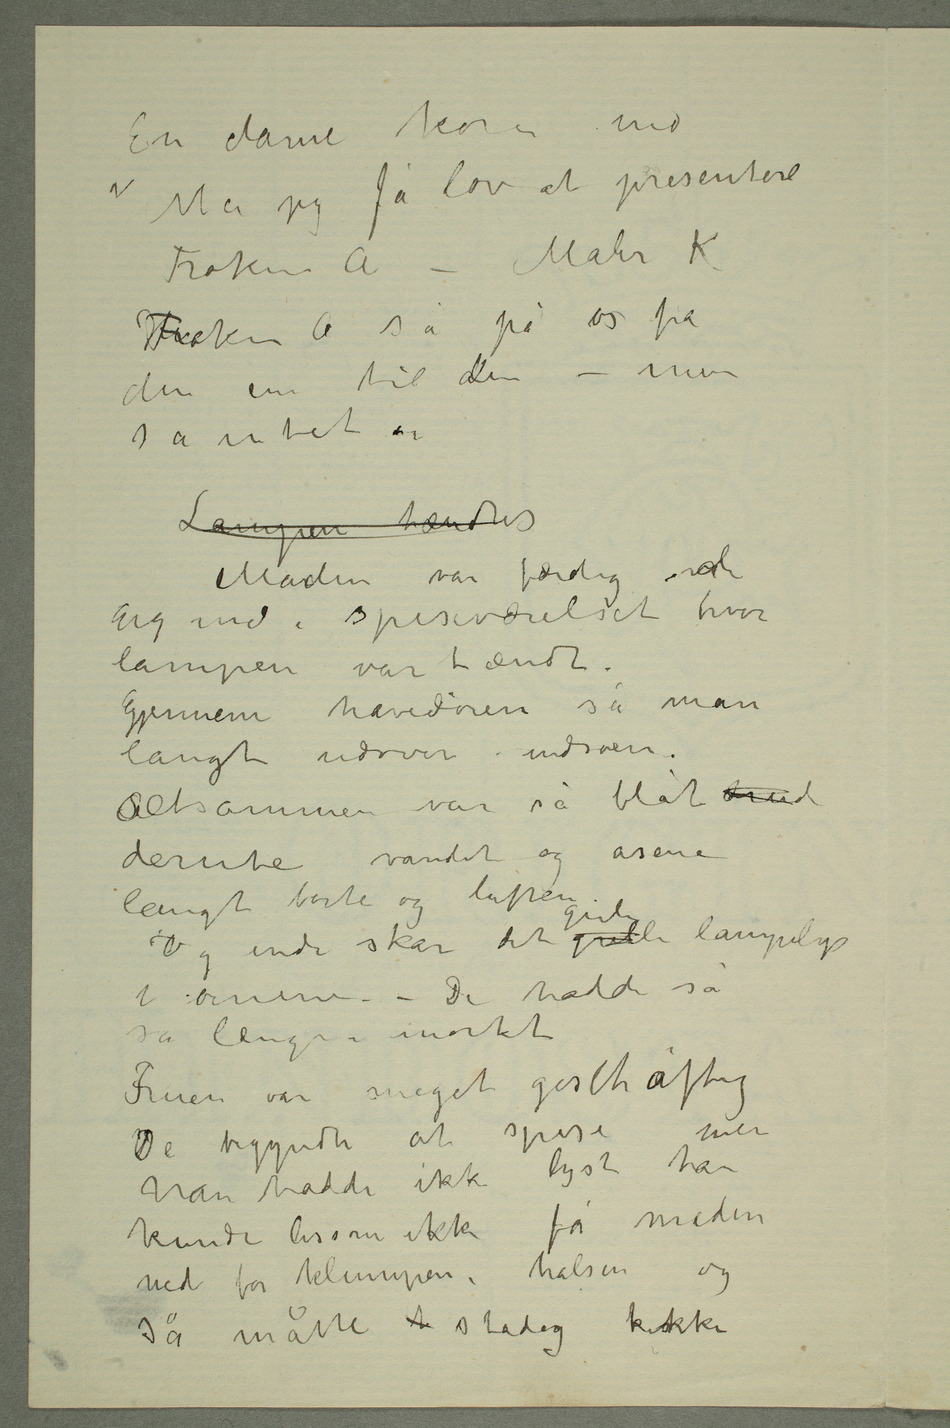 En dame kom ind
Må jeg få lov at presentere
Frøken A – Maler K
Frøken A så på os fra
den ene til den – men
sa intet
Lampen tændtes
Maden var færdig
gig ind i spiseværelset hvor
lampen var tændt.
Gjennem havedøren så man
langt udover indsøen.
Altsammen var så blåt
derute vandet og åsene
længt borte og luften.
Og inde skar det gule
grelle lampelys
i øinene. – De hadde så
så længe i mørkt
Fruen var meget geschäftig
De begyndte at spise men
han hadde ikke lyst han
kunde lissom ikke få maden
ned for klumpen i halsen og
så måtte t stadig kikke